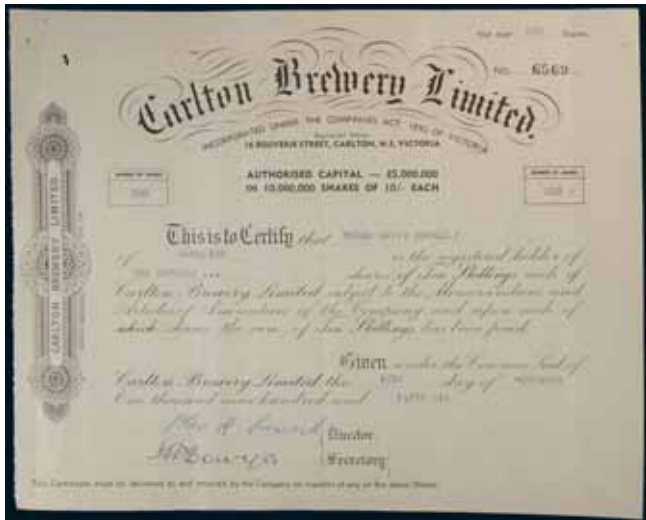 Not over Shares
NO. 6569
Carlton Brewery Limited.
INCORPORATED UNDER THE COMPANIES ACT 1890 OF VICTORIA
Registered Office
16 BOUVERIE STREET, CARLTON, N.3, VICTORIA
AUTHORISED CAPITAL — £5,000,000
IN 10,000,000 SHARES OF 10/- EACH
CARLTON BREWERY LIMITED
This is to Certify that
of is the registered holder of
shares of Ten Shillings each of
Carlton Brewery Limited subject to the Memorandum and
Articles of Association of the Company and upon each of
which shares the sum of Ten Shillings has been paid.
Given under the Common Seal of
Carlton Brewery Limited the day of
One thousand nine hundred and
Director
Secretary
This Certificate must be delivered to and retained by the Company on transfer of any of the above Shares